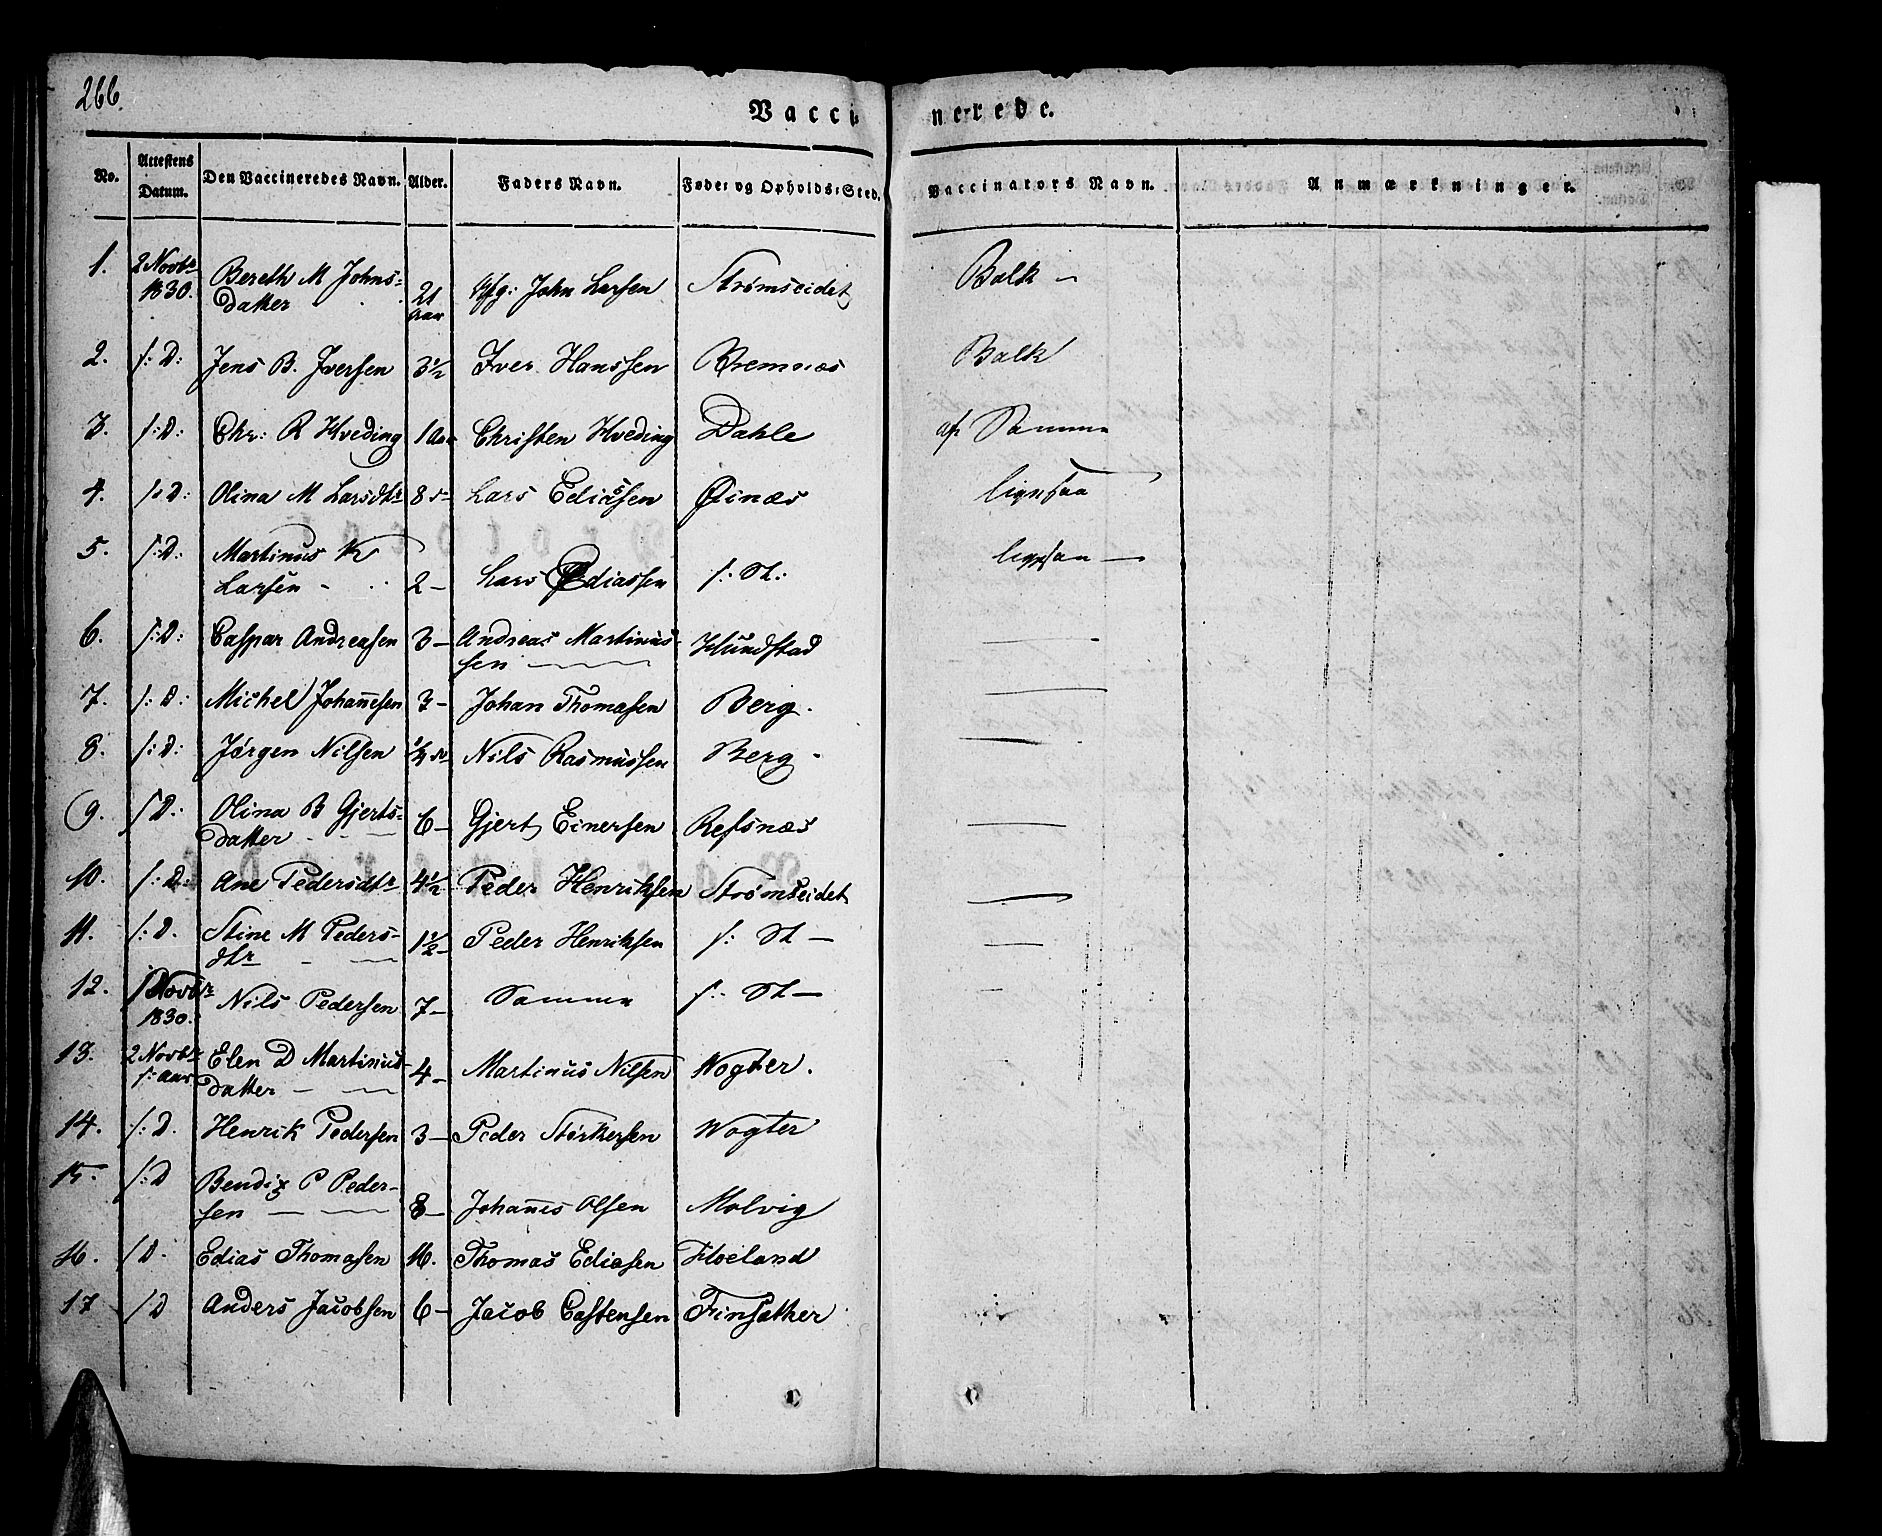 266.
Vaccinerede.
No. Attestens Datum. Den Vaccineredes Navn. Alder. Faders Navn. Føde: og Opholds: Sted. Vaccinators Navn. Anmærkninger.
1. 2 Novbr 1830. Bereth M Johns= datter 21 aar John Larsen Strømseidet Balk –
2. f: D: Jens B. Iversen 3½ Iver Hanssen Bremnæs Balk
3. f: D: Chr: R Hveding 1 Aar Christen Hveding Dahle af Samme
4. f: D: Olina M Larsdtr 8 Lars Ediassen Øinæs ligesaa
5. f: D: Martinus K Larsen – 2 – Lars Ediassen f: St: ligesaa –
6. f: D: Caspar Andreasen 3 – Andreas Martinus- sen — Hundstad —
7. f: D: Michel Johannesen 3 – Johan Thomasen Berg. —
8. f: D: Jørgen Nilsen ½ Nils Rasmussen Berg – —
9. f D: Olina B Gjerts= datter – – 6 – Gjert Einersen Refsnæs —
10. f: D: Ane Pedersdtr 4½ Peder Henriksen Strømseidet —
11. f: D. Stine M Peders- dtr – — 1½ – Peder Henriksen f: St – —
12. Novbr 1830. Nils Pedersen 7 – Samme f: St – —
13. 2 Novbr f: aar Elen D Martinus- datter – — 4 – Martinus Nilsen Wogter.
14. f: D. Henrik Pedersen 3 – Peder Størkersen Wogter
15. f: D Bendix P Peder- sen — — 8 – Johannes Olsen Molvig
16. f D. Edias Thomasen 16. Thomas Ediasen
17 f D Anders Jacobsen 6 – Jacob Castensen Finsæther